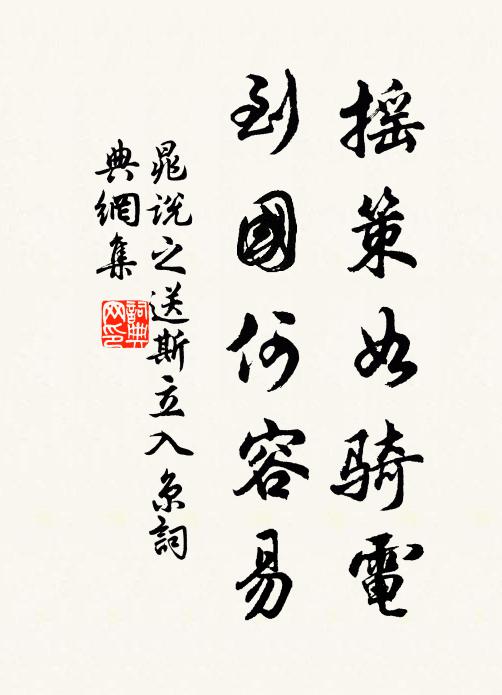 搖策如騎電
到國何容易
晁說之送斯立入京詞
典網集
詞典
網印